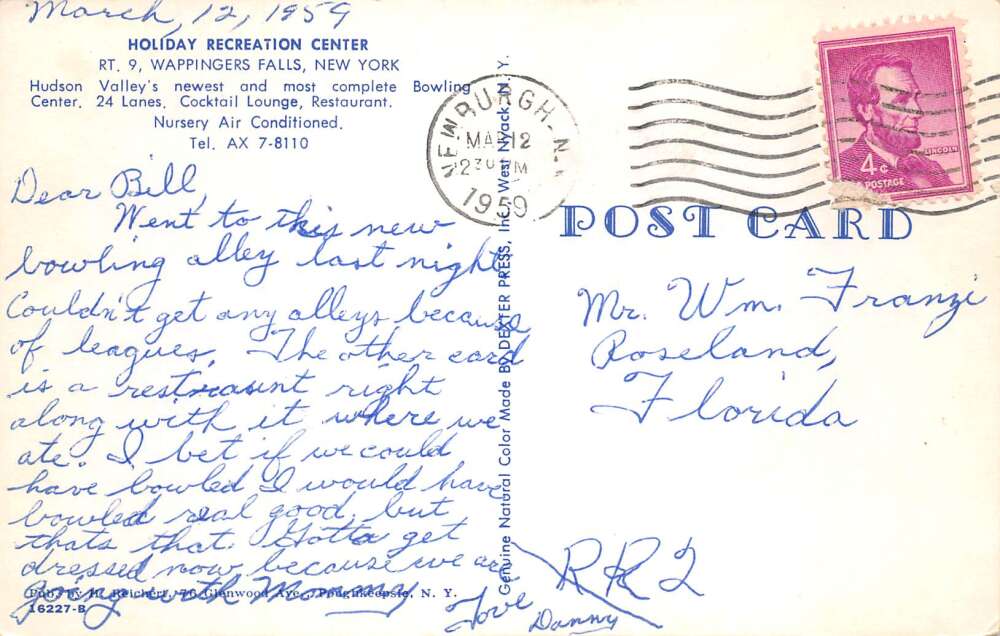 March, 12, 1959
HOLIDAY RECREATION CENTER
RT. 9, WAPPINGERS FALLS, NEW YORK
Hudson Valley's newest and most complete Bowling
Center. 24 Lanes, Cocktail Lounge, Restaurant.
Nursery Air Conditioned.
Tel. AX 7-8110
Dear Bill,
Went to this new
bowling alley last night
Couldn't get any alleys because
of leagues. The other card
is a restraunt right
along with it where we
ate. I bet if we could
have bowled I would have
bowled real good, but
thats that. Gotta get
dressed now because we are
going with Mommy
Love
Danny
Pub. by H. Reichert, 76 Glenwood Ave., Poughkeepsie, N. Y.
16227-B
Genuine Natural Color Made By DEXTER PRESS, Inc., West Nyack, N. Y.
NEWBURGH N.Y.
MAR 12
230 PM
1959
LINCOLN
4¢
POSTAGE
POST CARD
Mr. Wm. Franzi
Roseland,
Florida
RR2